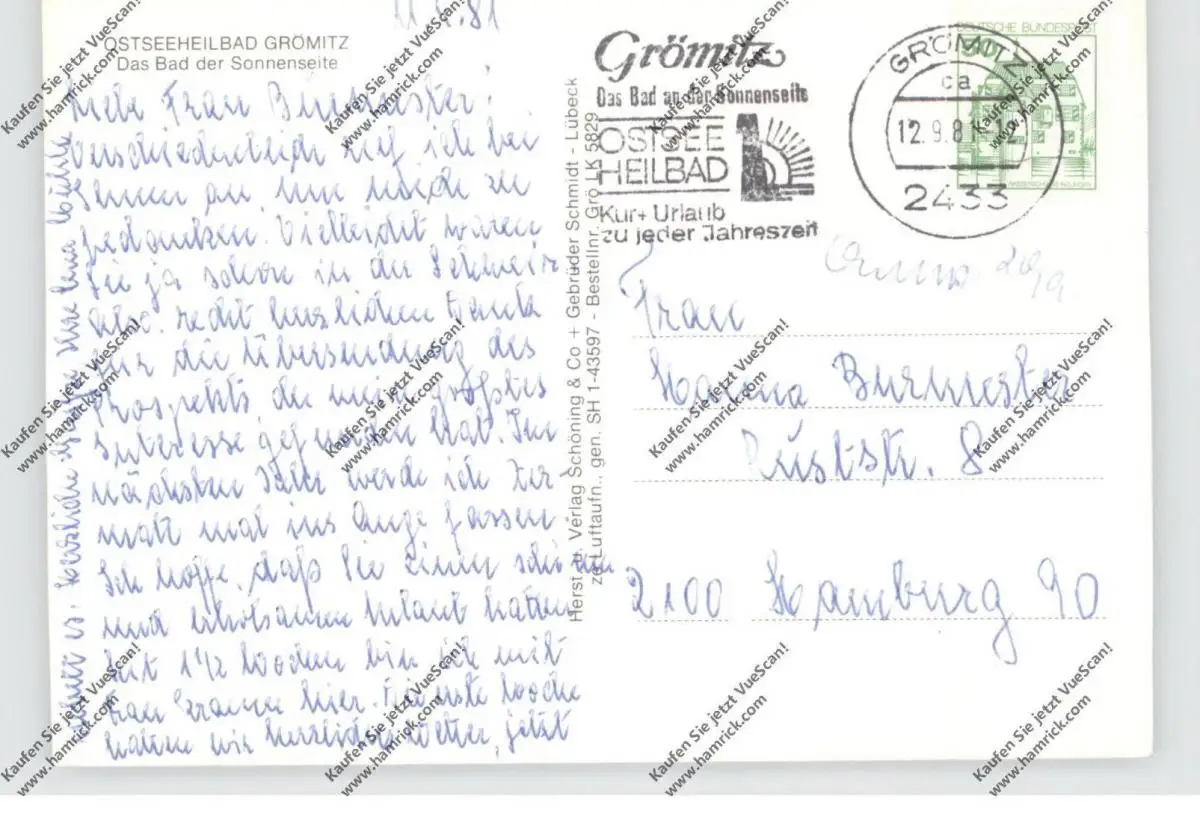 11.9.81
OSTSEEHEILBAD GRÖMITZ
Das Bad der Sonnenseite
Liebe Frau Burmester!
Verschiedentlich rief ich bei
Ihnen an, um mich zu
bedanken. Vielleicht waren
Sie ja schon in der Schweiz
also: recht herzlichen Dank
für die Übersendung des
Prospekts, der mein größtes
Interesse gefunden hat. Im
nächsten Jahr werde ich Zer-
matt mal ins Auge fassen
Ich hoffe, daß Sie einen schönen
und erholsamen Urlaub hatten
Seit 1½ Wochen bin ich mit
Frau hier. Die erste Woche
hatten wir herrliches Wetter, jetzt
es. Herzliche Grüße Ihre
Herst. u. Verlag Schöning & Co + Gebrüder Schmidt - Lübeck
zu Luftaufn., gen. SH 1-43597 - Bestellnr. Grö LK 5829
Grömitz
Das Bad an der Sonnenseite
OSTSEE
HEILBAD
Kur + Urlaub
zu jeder Jahreszeit
DEUTSCHE BUNDESPOST
GRÖMITZ
ca
12.9.8
2433
Frau
Burmester
8
2100 Hamburg 90
Kaufen Sie jetzt VueScan!
www.hamrick.com